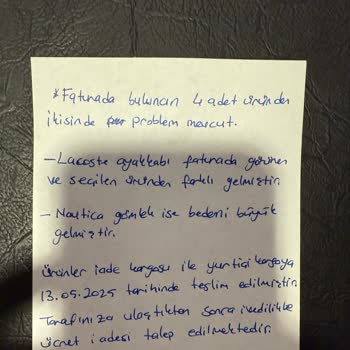 * Faturada bulunan 4 adet üründen
ikisinde problem mevcut.
- Lacoste ayakkabı faturada görünen
ve seçilen üründen farklı gelmiştir.
- Nautica gömlek ise bedeni büyük
gelmiştir.
Ürünler iade kargosu ile yurtiçi kargoya
13.05.2025 tarihinde teslim edilmiştir.
Tarafınıza ulaştıktan sonra ivedilikle
ücret iadesi talep edilmektedir.